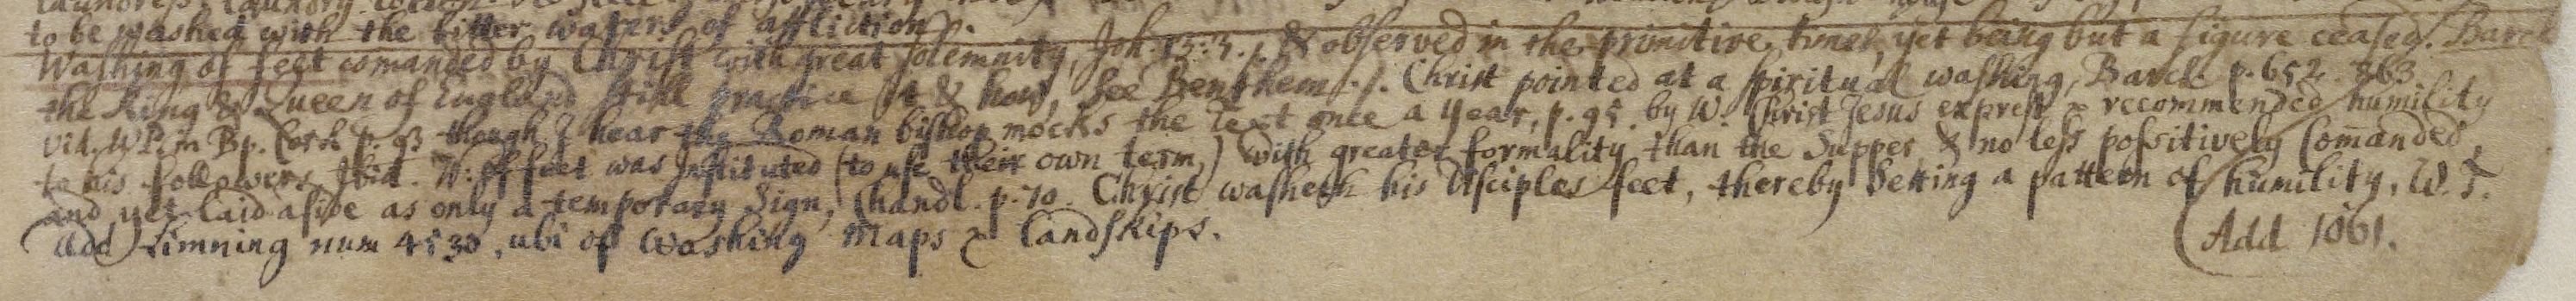 to be washed with the bitter waters of affliction.
Washing of feet comanded by Christ with great solemnity, Joh. 13:5., & observed in the primitive times, yet being but a figure ceased. Barcl
the King & Queen of England still practice it & how, See Benthem./. Christ pointed at a spiritual washing, Barcl. p. 652. 863.
vid. W P. in Bp. Cork p. 93 though I hear the Roman bishop mocks the Text once a year, p. 95. by W. Christ Jesus exprest & recommended humility
to his followers Ibid. W: of feet was Instituted (to use their own term,) with greater formality than the Supper, & no less possitively Com̄anded,
and yet laid aside as only a temporary Sign, Chandl. p. 70. Christ washeth his Disciples feet, thereby Setting a pattern of humility, W. T.
Add Limning num 4530. ubi of Washing Maps & Landskips.
Add 1061.